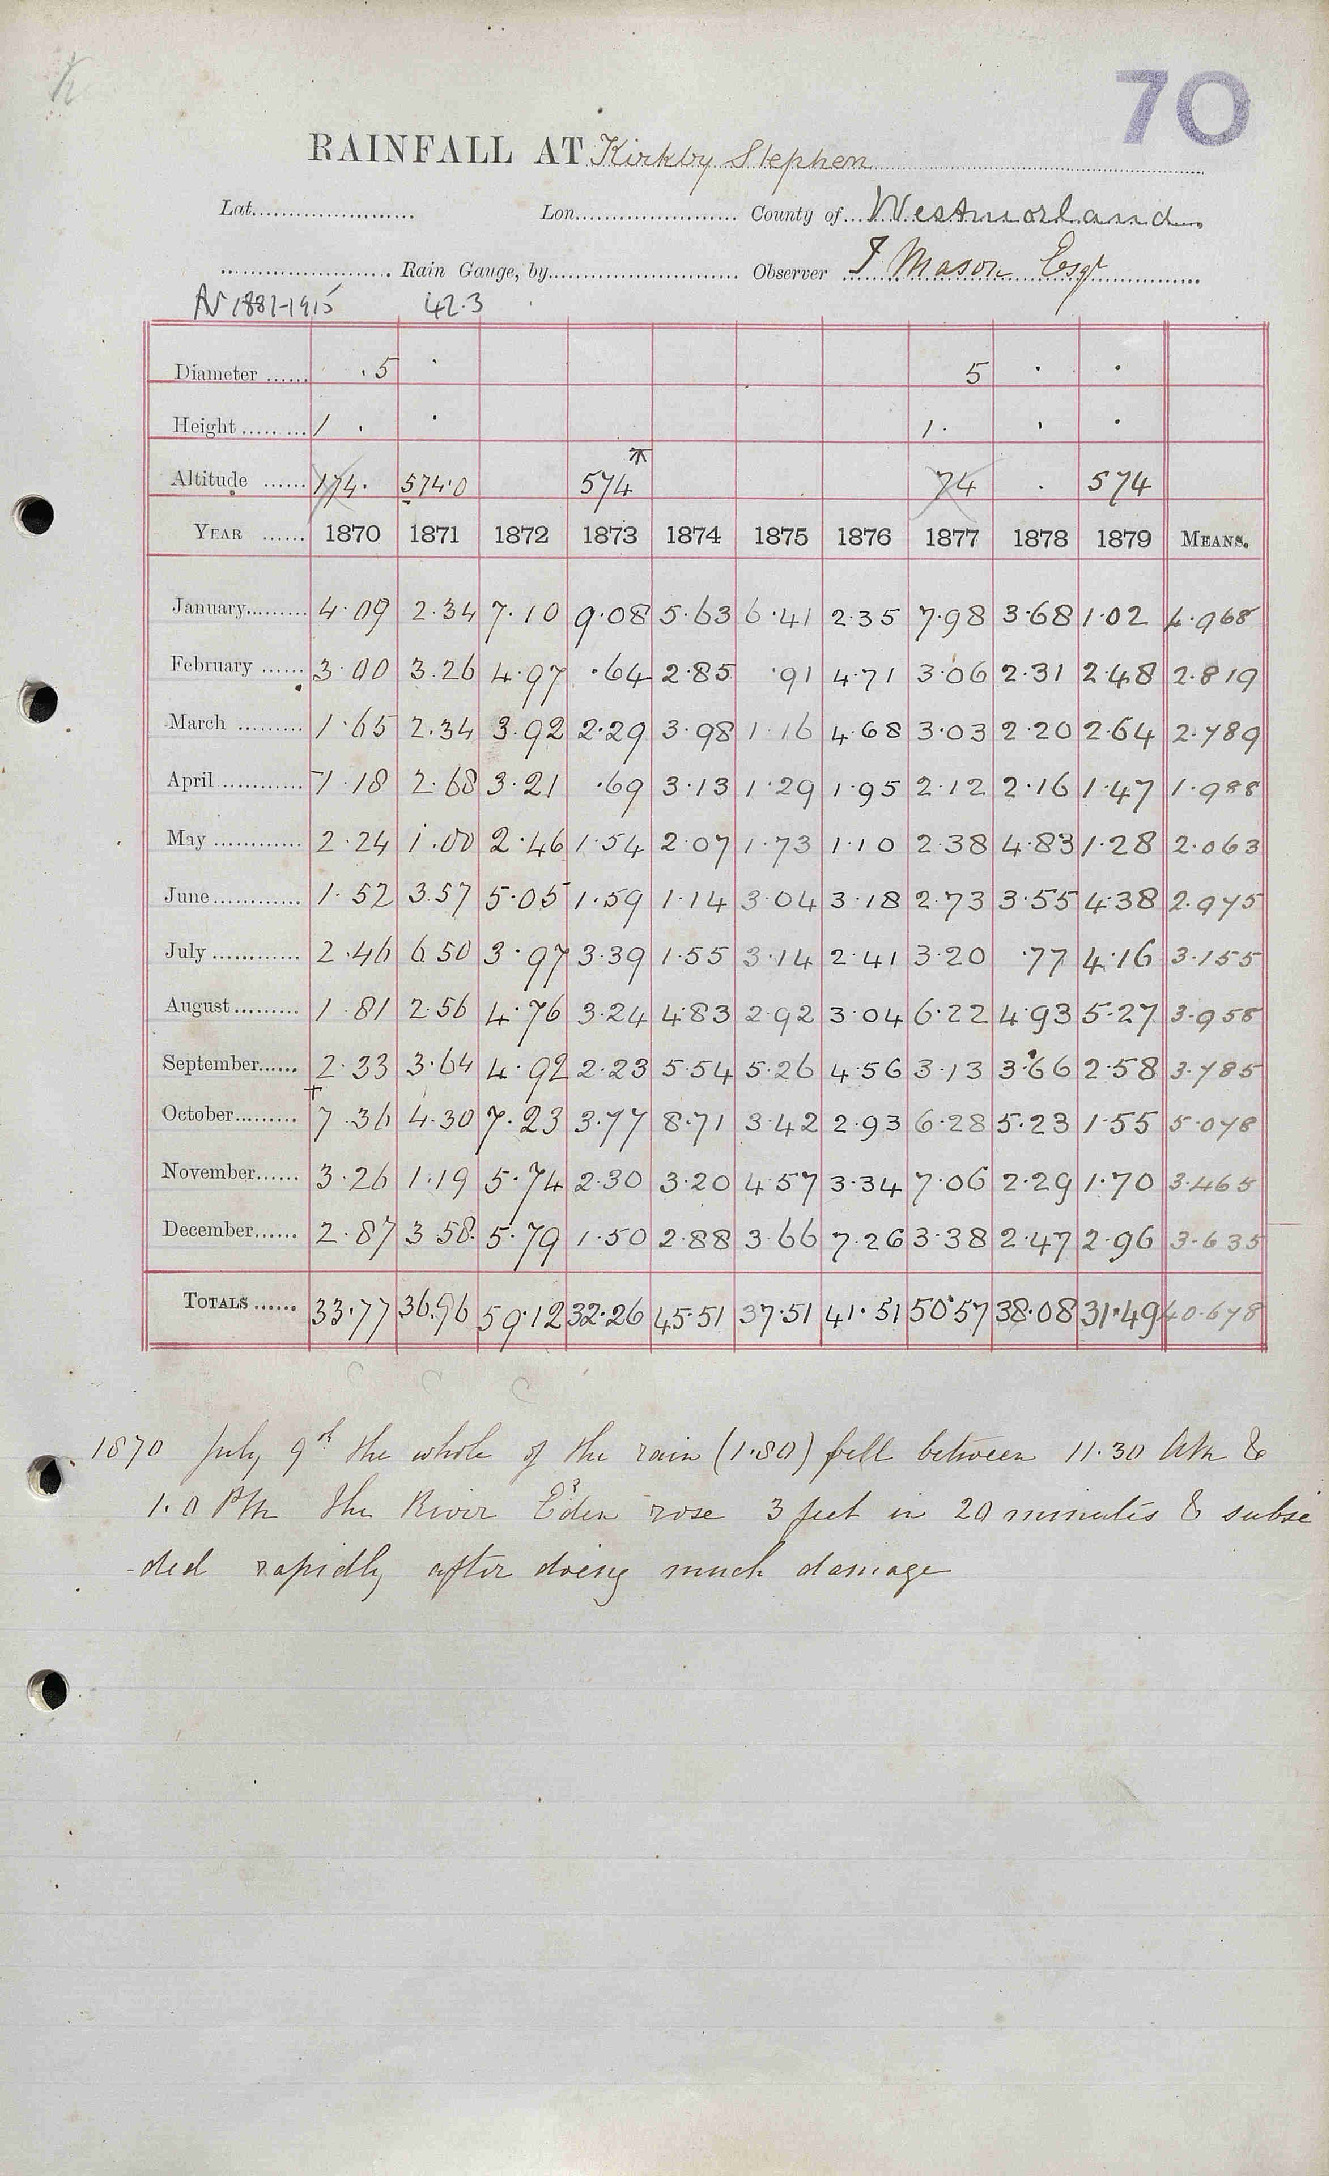 70
RAINFALL AT Kirkby Stephen
Lat. Lon. County of Westmorland
Rain Gauge, by Observer T Mason Esqr
Av 1881-1915 42.3
Diameter 5 · 5 · ·
Height 1 · · 1 · · ·
Altitude 174 · 574·0 574 74 · 574
YEAR 1870 1871 1872 1873 1874 1875 1876 1877 1878 1879 MEANS.
January 4·09 2·34 7·10 9·08 5·63 6·41 2·35 7·98 3·68 1·02 4·968
February 3·00 3·26 4·97 ·64 2·85 ·91 4·71 3·06 2·31 2·48 2·819
March 1·65 2·34 3·92 2·29 3·98 1·16 4·68 3·03 2·20 2·64 2·789
April 1·18 2·68 3·21 ·69 3·13 1·29 1·95 2·12 2·16 1·47 1·988
May 2·24 1·00 2·46 1·54 2·07 1·73 1·10 2·38 4·83 1·28 2·063
June 1·52 3·57 5·05 1·59 1·14 3·04 3·18 2·73 3·55 4·38 2·975
July 2·46 6·50 3·97 3·39 1·55 3·14 2·41 3·20 ·77 4·16 3·155
August 1·81 2·56 4·76 3·24 4·83 2·92 3·04 6·22 4·93 5·27 3·958
September 2·33 3·64 4·92 2·23 5·54 5·26 4·56 3·13 3·66 2·58 3·785
October 7·36 4·30 7·23 3·77 8·71 3·42 2·93 6·28 5·23 1·55 5·078
November 3·26 1·19 5·74 2·30 3·20 4·57 3·34 7·06 2·29 1·70 3·465
December 2·87 3·58 5·79 1·50 2·88 3·66 7·26 3·38 2·47 2·96 3·635
TOTALS 33·77 36·96 59·12 32·26 45·51 37·51 41·51 50·57 38·08 31·49 40·678
1870 July 9th the whole of the rain (1·80) fell between 11·30 AM &
1·0 PM the River Eden rose 3 feet in 20 minutes & subsi
-ded rapidly after doing much damage